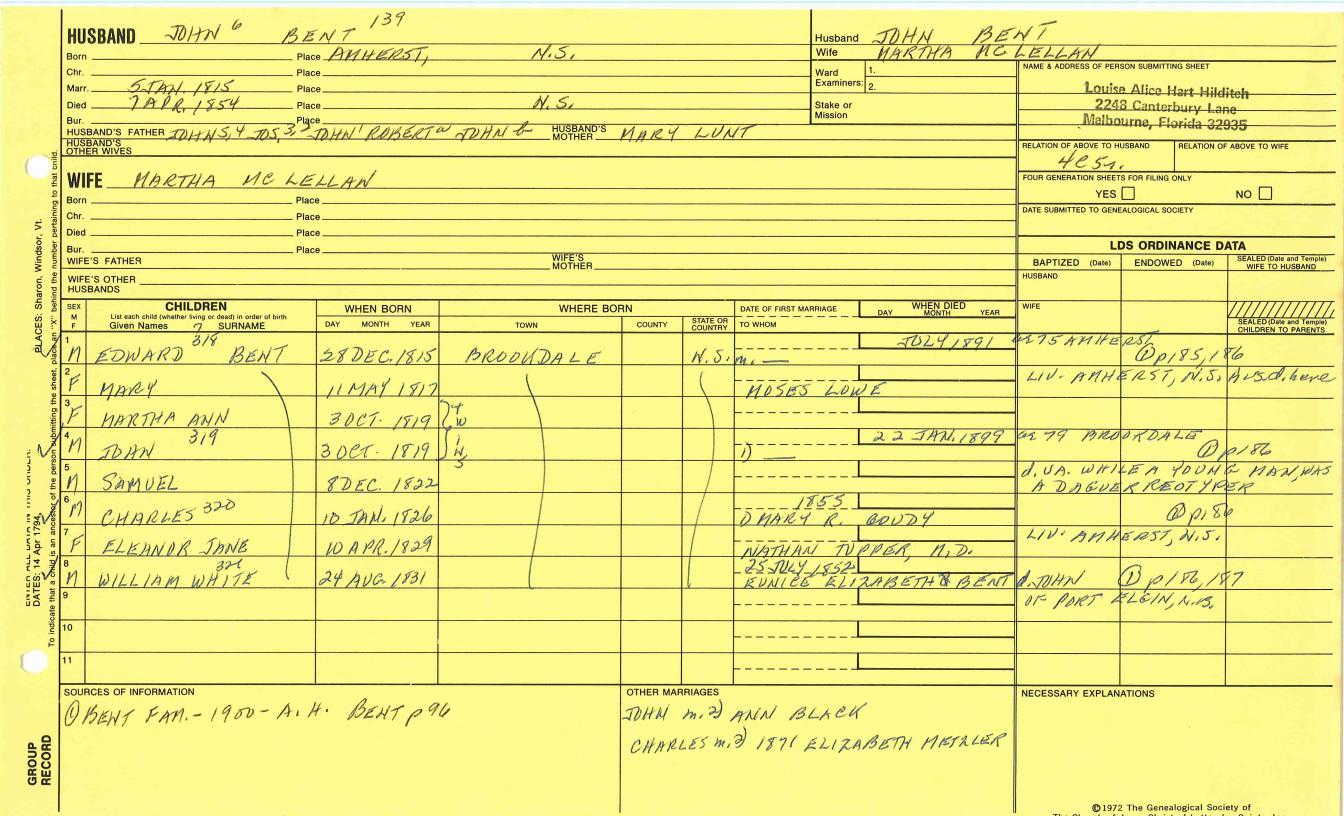 HUSBAND JOHN 6 BENT 139
Born Place AMHERST, N.S.
Chr. Place
Marr. 5 JAN. 1815 Place
Died 7 APR. 1854 Place N.S.
Bur. Place
HUSBAND'S FATHER JOHN 5,4 JOS, 3,2 JOHN 1 ROBERT a JOHN b HUSBAND'S MOTHER MARY LUNT
HUSBAND'S OTHER WIVES
Husband JOHN BENT
Wife MARTHA MC LELLAN
Ward Examiners: 1.
2.
Stake or Mission
NAME & ADDRESS OF PERSON SUBMITTING SHEET
Louise Alice Hart Hilditch
2248 Canterbury Lane
Melbourne, Florida 32935
RELATION OF ABOVE TO HUSBAND RELATION OF ABOVE TO WIFE
4C5r.
FOUR GENERATION SHEETS FOR FILING ONLY
YES NO
DATE SUBMITTED TO GENEALOGICAL SOCIETY
WIFE MARTHA MC LELLAN
Born Place
Chr. Place
Died Place
Bur. Place
WIFE'S FATHER WIFE'S MOTHER
WIFE'S OTHER HUSBANDS
LDS ORDINANCE DATA
BAPTIZED (Date) ENDOWED (Date) SEALED (Date and Temple) WIFE TO HUSBAND
HUSBAND
WIFE
SEALED (Date and Temple) CHILDREN TO PARENTS
SEX M F CHILDREN WHEN BORN WHERE BORN DATE OF FIRST MARRIAGE WHEN DIED
List each child (whether living or dead) in order of birth
Given Names 7 SURNAME DAY MONTH YEAR TOWN COUNTY STATE OR COUNTRY TO WHOM DAY MONTH YEAR
1 M EDWARD 318 BENT 28 DEC. 1815 BROOKDALE N.S. m. — JULY 1891 ae 75 AMHERST ① p185,186
2 F MARY 11 MAY 1817 MOSES LOWE LIV. AMHERST, N.S. & us.d. here
3 F MARTHA ANN 3 OCT. 1819 TWINS
4 M JOHN 319 3 OCT. 1819 1) — 22 JAN. 1899 ae 79 BROOKDALE ① p186
5 M SAMUEL 8 DEC. 1822 d. VA. WHILE A YOUNG MAN, WAS
A DAGUERREOTYPER
6 M CHARLES 320 10 JAN. 1826 1855
MARY R. GOUDY ① p186
7 F ELEANOR JANE 10 APR. 1829 NATHAN TUPPER, M.D. LIV. AMHERST, N.S.
8 M WILLIAM WHITE 321 24 AUG 1831 25 JULY 1852
EUNICE ELIZABETH 8 BENT d. JOHN ① p186,187
9 OF PORT ELGIN, N.B.
10
11
SOURCES OF INFORMATION
① BENT FAM. - 1900 - A. H. BENT p 96
OTHER MARRIAGES
JOHN m. 2) ANN BLACK
CHARLES m. 2) 1871 ELIZABETH METZLER
NECESSARY EXPLANATIONS
©1972 The Genealogical Society of
PLACES: Sharon, Windsor, Vt.
ENTER ALL DATA IN THIS ORDER:
DATES: 14 Apr 1794
To indicate that a child is an ancestor of the person submitting the sheet, place an "X" behind the number pertaining to that child.
GROUP RECORD